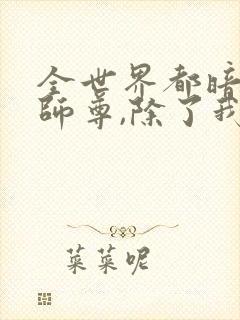 全世界都暗
師尊,除了我
菜菜呢